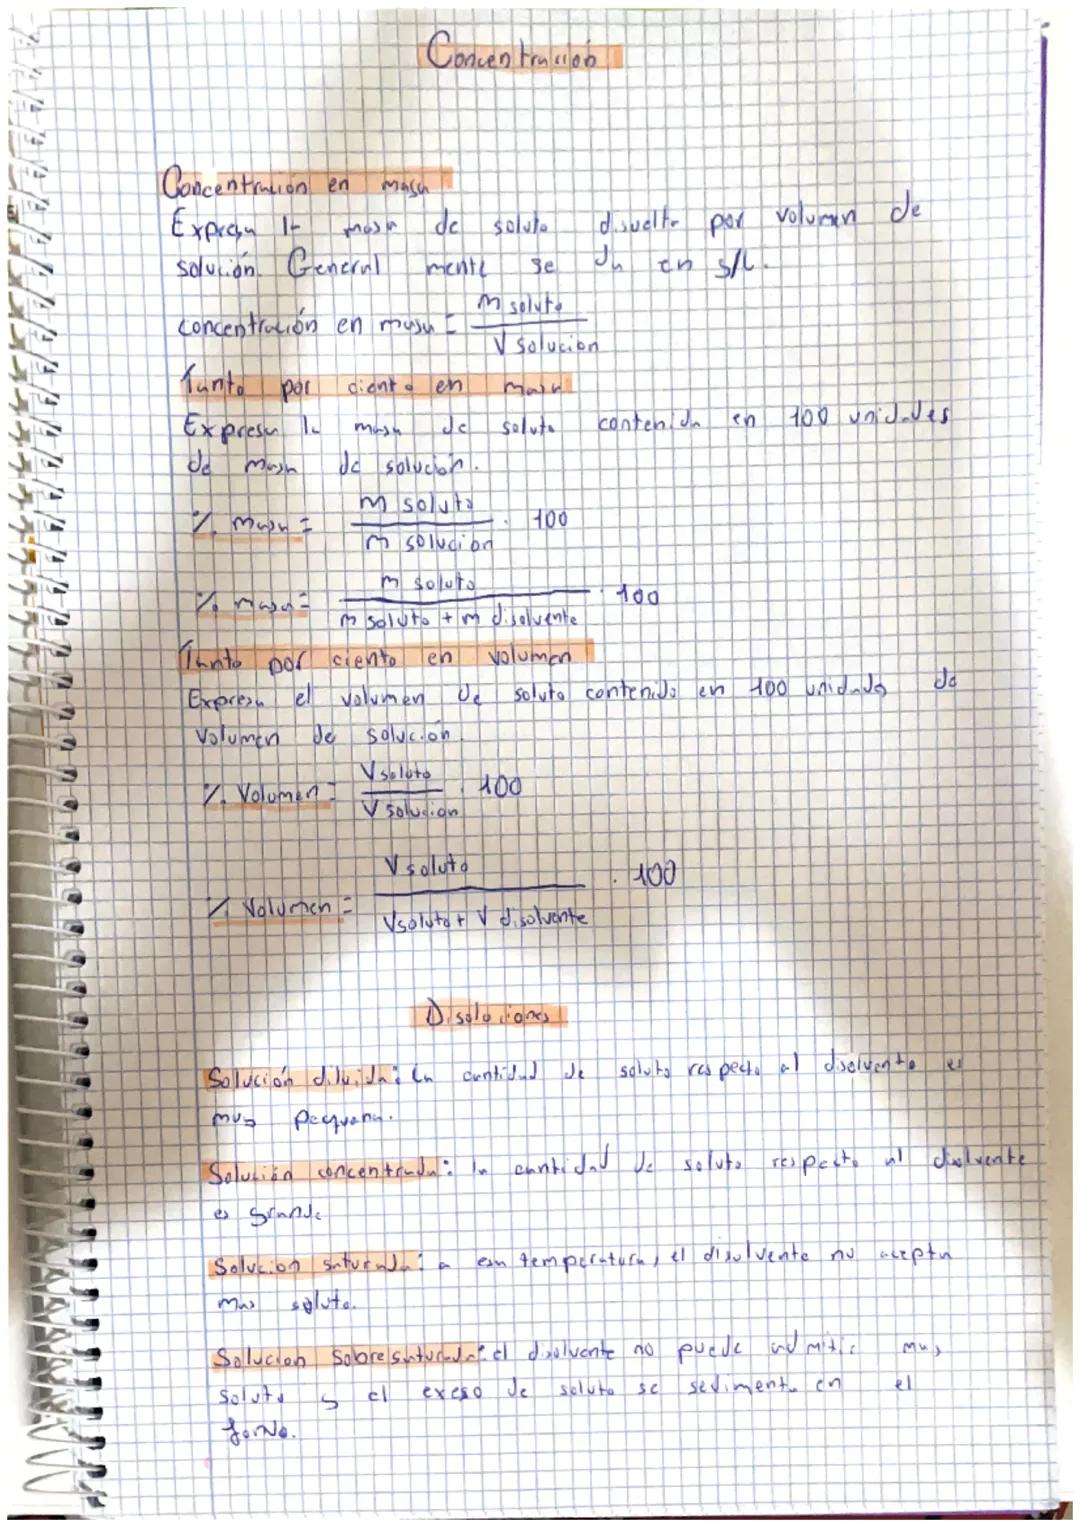 Concentración
Concentración en masa
Expresa la masa de soluto disuelto por volumen de
solución. Generalmente se da en g/L.
concentración en masa = m soluto / V solucion
Tanto por ciento en masa
Expresa la masa de soluto contenida en 100 unidades
de masa de solución.
% masa = m soluto / m solucion · 100
% masa = m soluto / m soluto + m disolvente · 100
Tanto por ciento en volumen
Expresa el volumen de soluto contenido en 100 unidades de
volumen de solución
% Volumen = V soluto / V solucion · 100
% Volumen = V soluto / V soluto + V disolvente · 100
Disoluciones
Solución diluida: la cantidad de soluto respecto al disolvente es
muy pequeña.
Solución concentrada: la cantidad de soluto respecto al disolvente
es grande
Solucion saturada: a esa temperatura, el disolvente no acepta
mas soluto.
Solucion sobresaturada: el disolvente no puede admitir mas
soluto y el exeso de soluto se sedimenta en el
fondo.